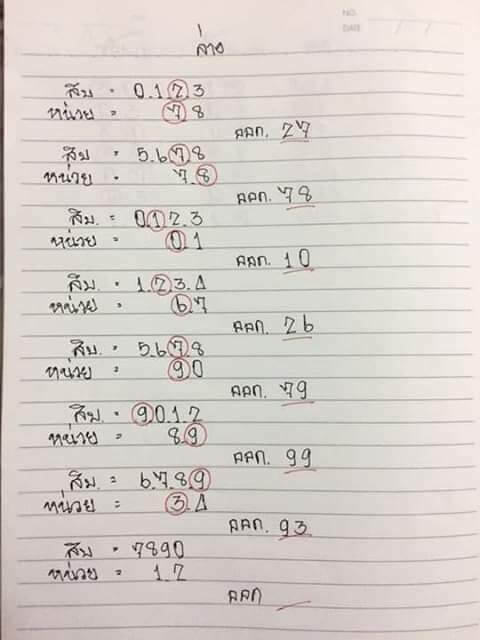 NO.
DATE
ล่าง
สิบ = 0.1.2.3
หน่วย = 7.8
ออก. 27
สิบ = 5.6.7.8
หน่วย = 7.8
ออก. 78
สิบ. = 0.1.2.3
หน่วย = 0.1
ออก. 10
สิบ = 1.2.3.4
หน่วย = 6.7
ออก. 26
สิบ. = 5.6.7.8
หน่วย = 9.0
ออก. 79
สิบ. = 9.0.1.2
หน่วย = 8.9
ออก. 99
สิบ. = 6.7.8.9
หน่วย = 3.4
ออก. 93
สิบ = 7890
หน่วย = 1.2
ออก